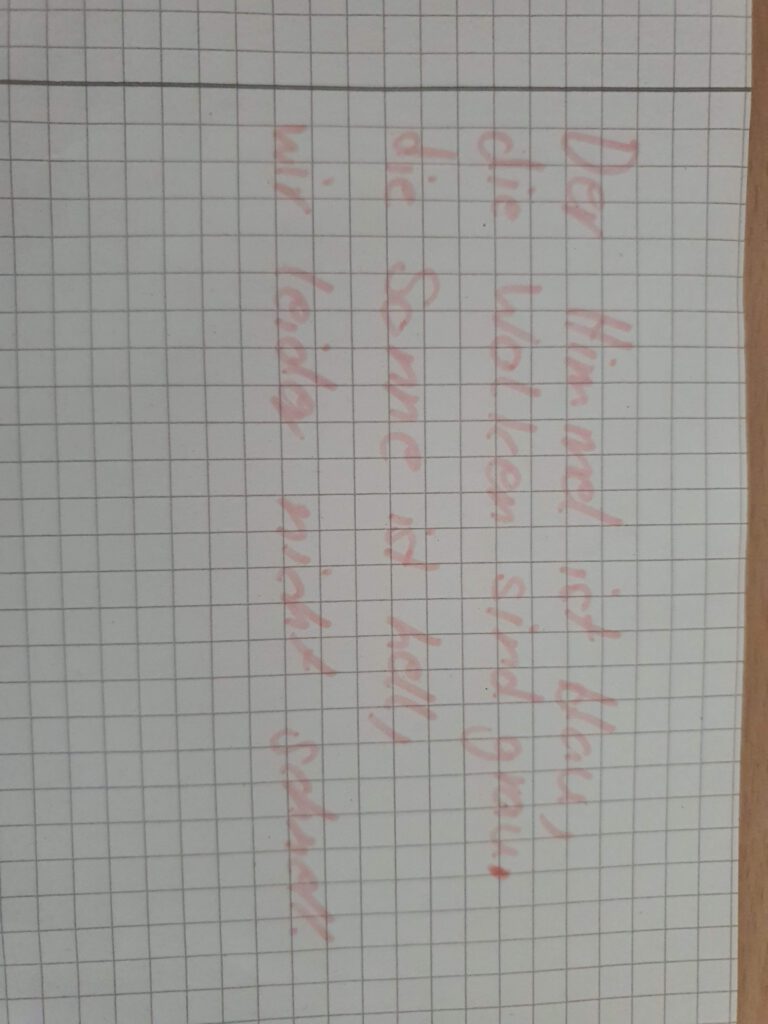 Der Himmel ist blau,
die Wolken sind grau.
die Sonne ist hell,
wir leider nicht schnell.